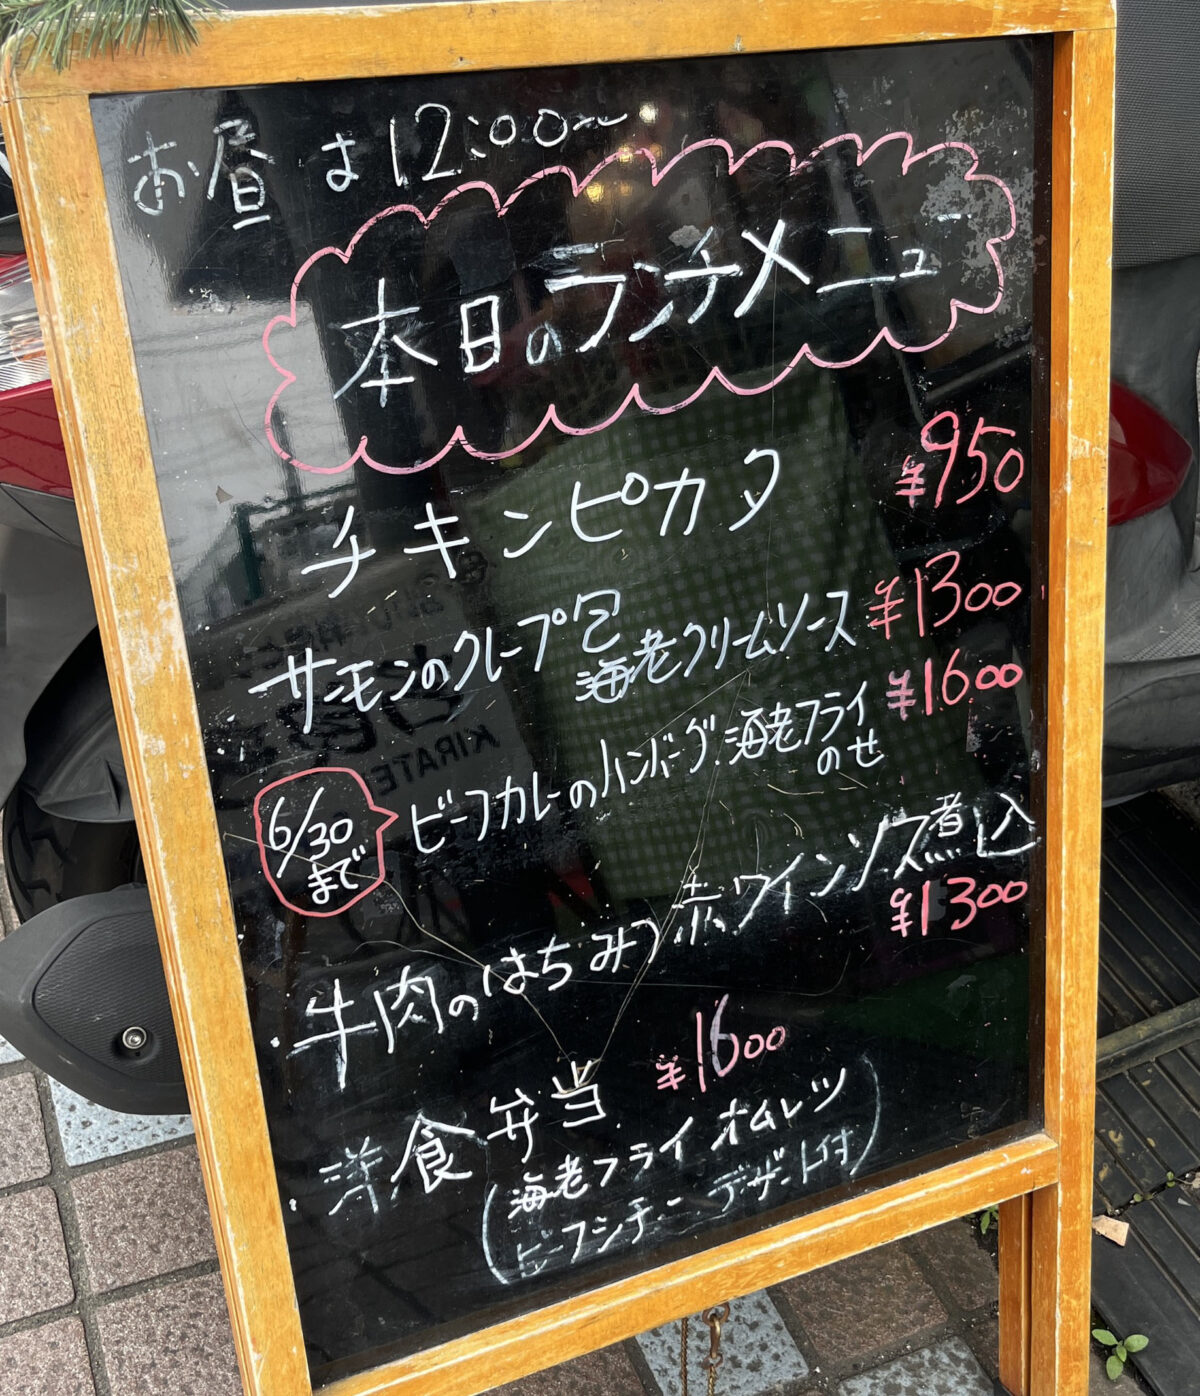 お昼は12:00〜
本日のランチメニュー
チキンピカタ ¥950
サーモンのクレープ包 海老クリームソース ¥1300
6/30まで
ビーフカレーのハンバーグ.海老フライのせ ¥1600
牛肉のはちみつ赤ワインソース煮込 ¥1300
・洋食弁当 ¥1600
(海老フライ オムレツ
ビーフシチュー デザート付)
KIRATE